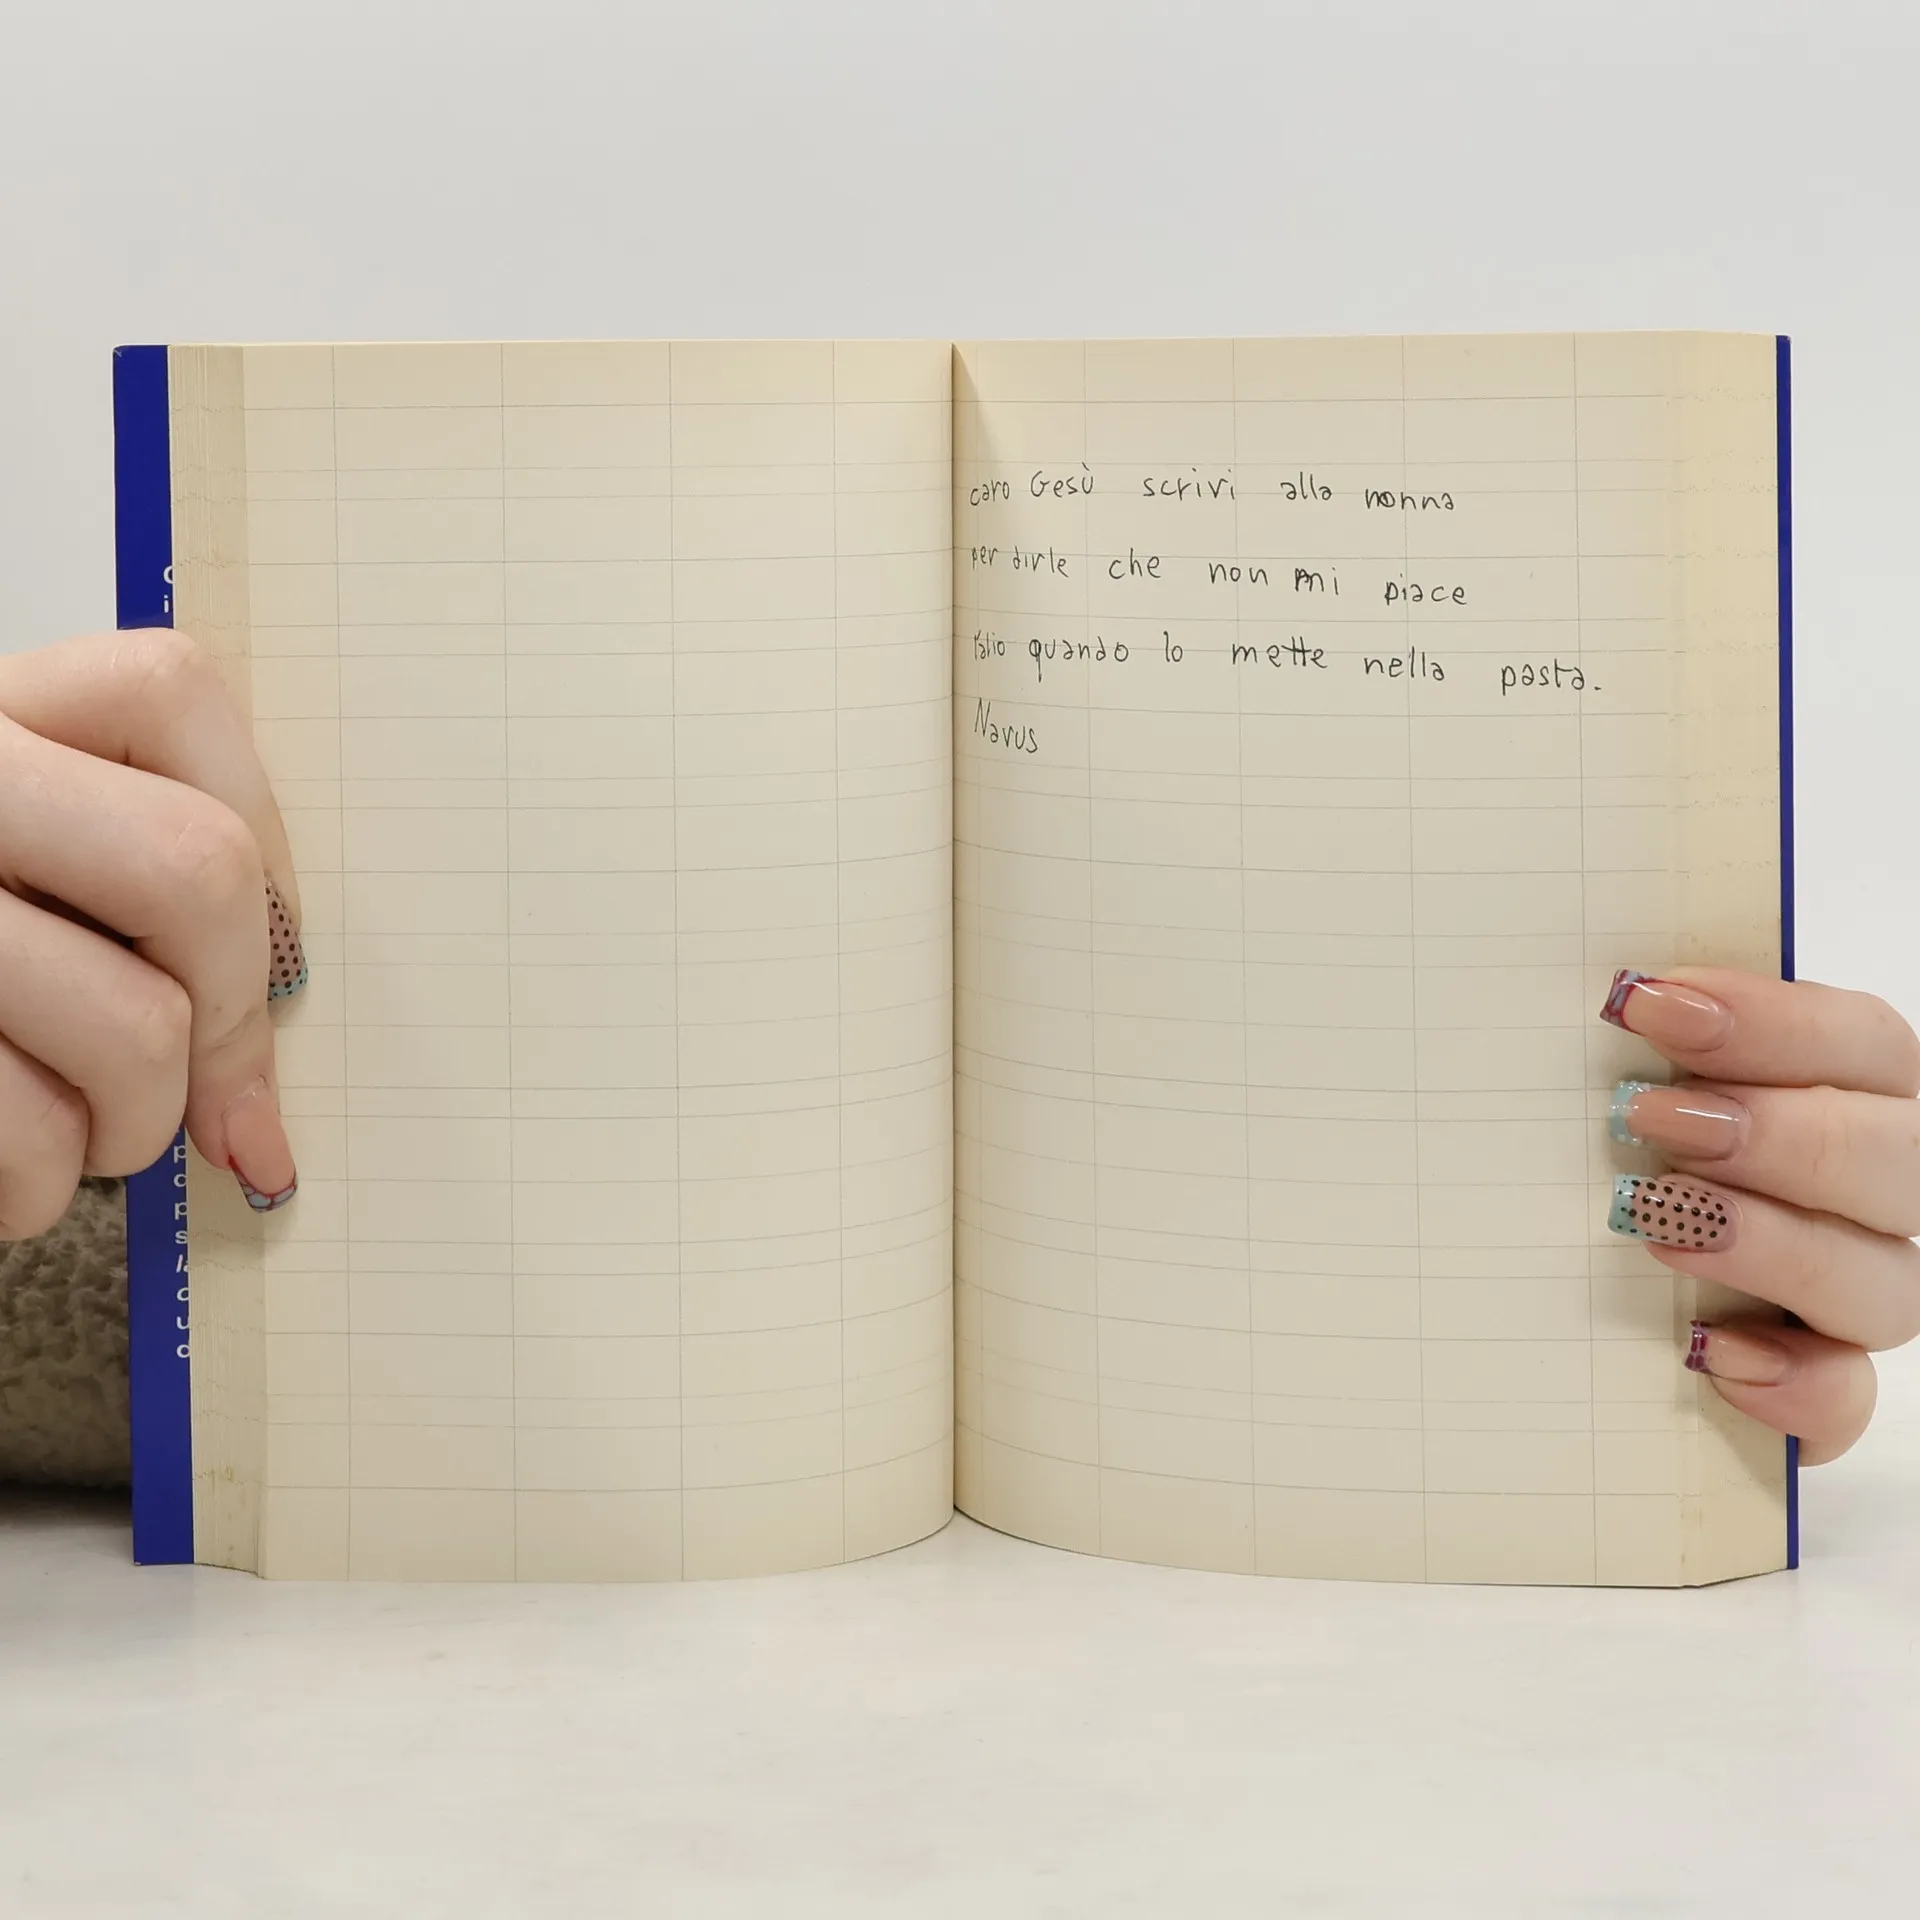 caro Gesù scrivi alla nonna
per dirle che non mi piace
quando lo mette nella pasta.
Navus